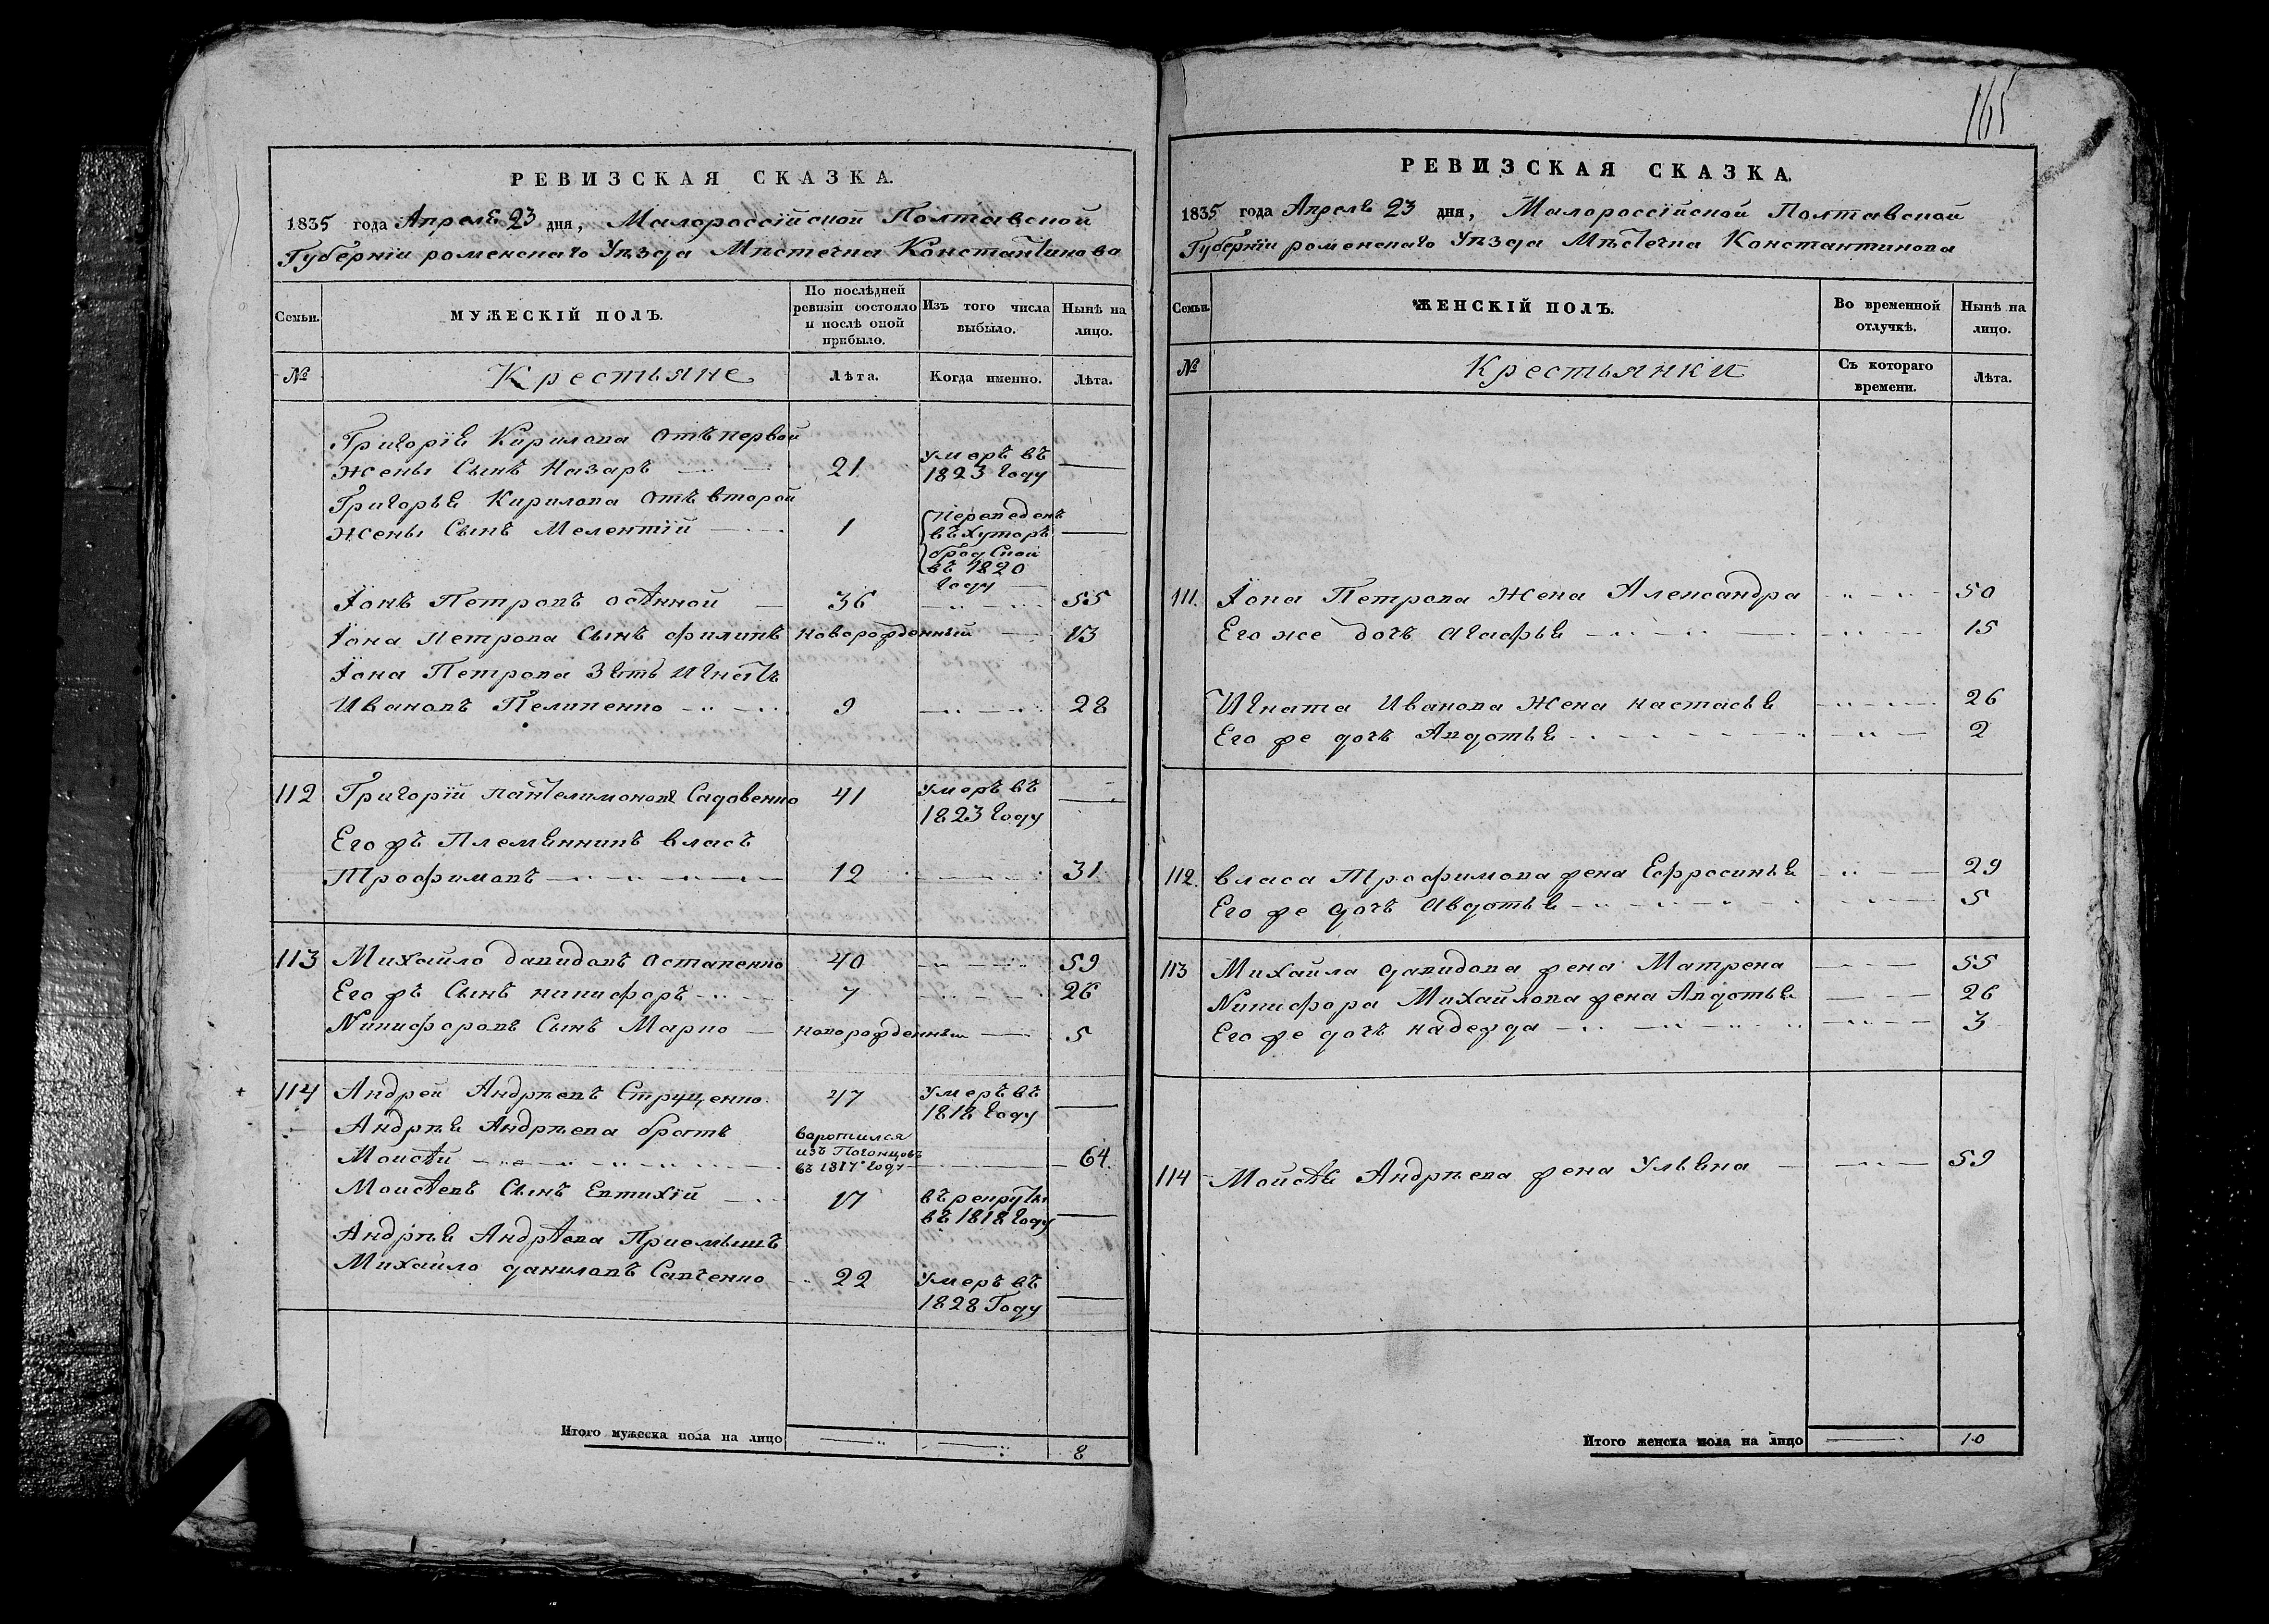 165
РЕВИЗСКАЯ СКАЗКА.
1835 года Апреля 23 дня, Малороссійской Полтавской
Губерніи роменскаго Уѣзда Мѣстечка Константинова
Семьи.
МУЖЕСКІЙ ПОЛЪ.
По послѣдней ревизіи состояло и послѣ оной прибыло.
Изъ того числа выбыло.
Нынѣ на лицо.
№
Крестьяне
Лѣта.
Когда именно.
Лѣта.
Григорія Кирилова отъ первой
жены Сынъ Назаръ 21 умеръ въ
1823 году
Григорья Кирилова отъ второй
жены Сынъ Мелентій 1 переведенъ
въ хуторъ
въ 1820
году
Іонъ Петровъ 36 55
Іона Петрова Сынъ филипъ новорожденный 13
Іона Петрова Зять Игнатъ
Ивановъ Пелипенко 9 28
112 Григорій пантелимоновъ Садовенко 41 умеръ въ
1823 году
Его жъ Племянникъ власъ
Трофимовъ 12 31
113 Михайло давидовъ Остапенко 40 59
Его жъ Сынъ никифоръ 7 26
Никифоровъ Сынъ Марко новорожденный 5
114 Андрей Андрѣевъ Струценко 47 умеръ въ
1818 году
Андрѣя Андрѣева братъ
Моисѣй воротился
изъ Погонцовъ
въ 1817 году 64
Моисѣевъ Сынъ Евтихій 17 въ рекруты
въ 1818 году
Андрѣя Андрѣева Приемышъ
Михайло даниловъ Савченко 22 умеръ въ
1828 Году
Итого мужеска пола на лицо 8
РЕВИЗСКАЯ СКАЗКА.
1835 года Апреля 23 дня, Малороссійской Полтавской
Губерніи роменскаго Уѣзда Мѣстечка Константинова
Семьи.
ЖЕНСКІЙ ПОЛЪ.
Во временной отлучкѣ.
Нынѣ на лицо.
№
Крестьянки
Съ котораго времени.
Лѣта.
111. Іона Петрова жена Александра 50
Его же дочь Агафья 15
Игната Иванова жена настасья 26
Его же дочь Авдотья 2
112. власа Трофимова жена Ефросинья 29
Его же дочь Авдотья 5
113 Михайла давидова жена Матрена 55
Никифора Михайлова жена Авдотья 26
Его же дочь надежда 3
114 Мойсѣя Андрѣева жена Ульяна 59
Итого женска пола на лицо 10